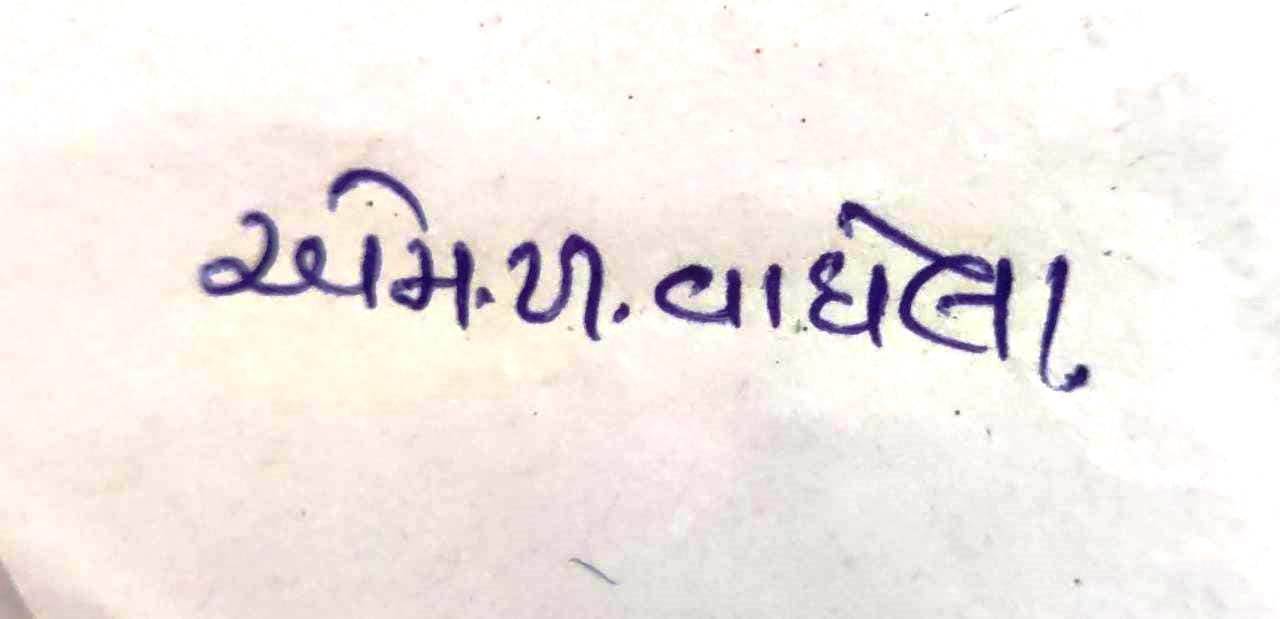 એમ.પી.વાઘેલા